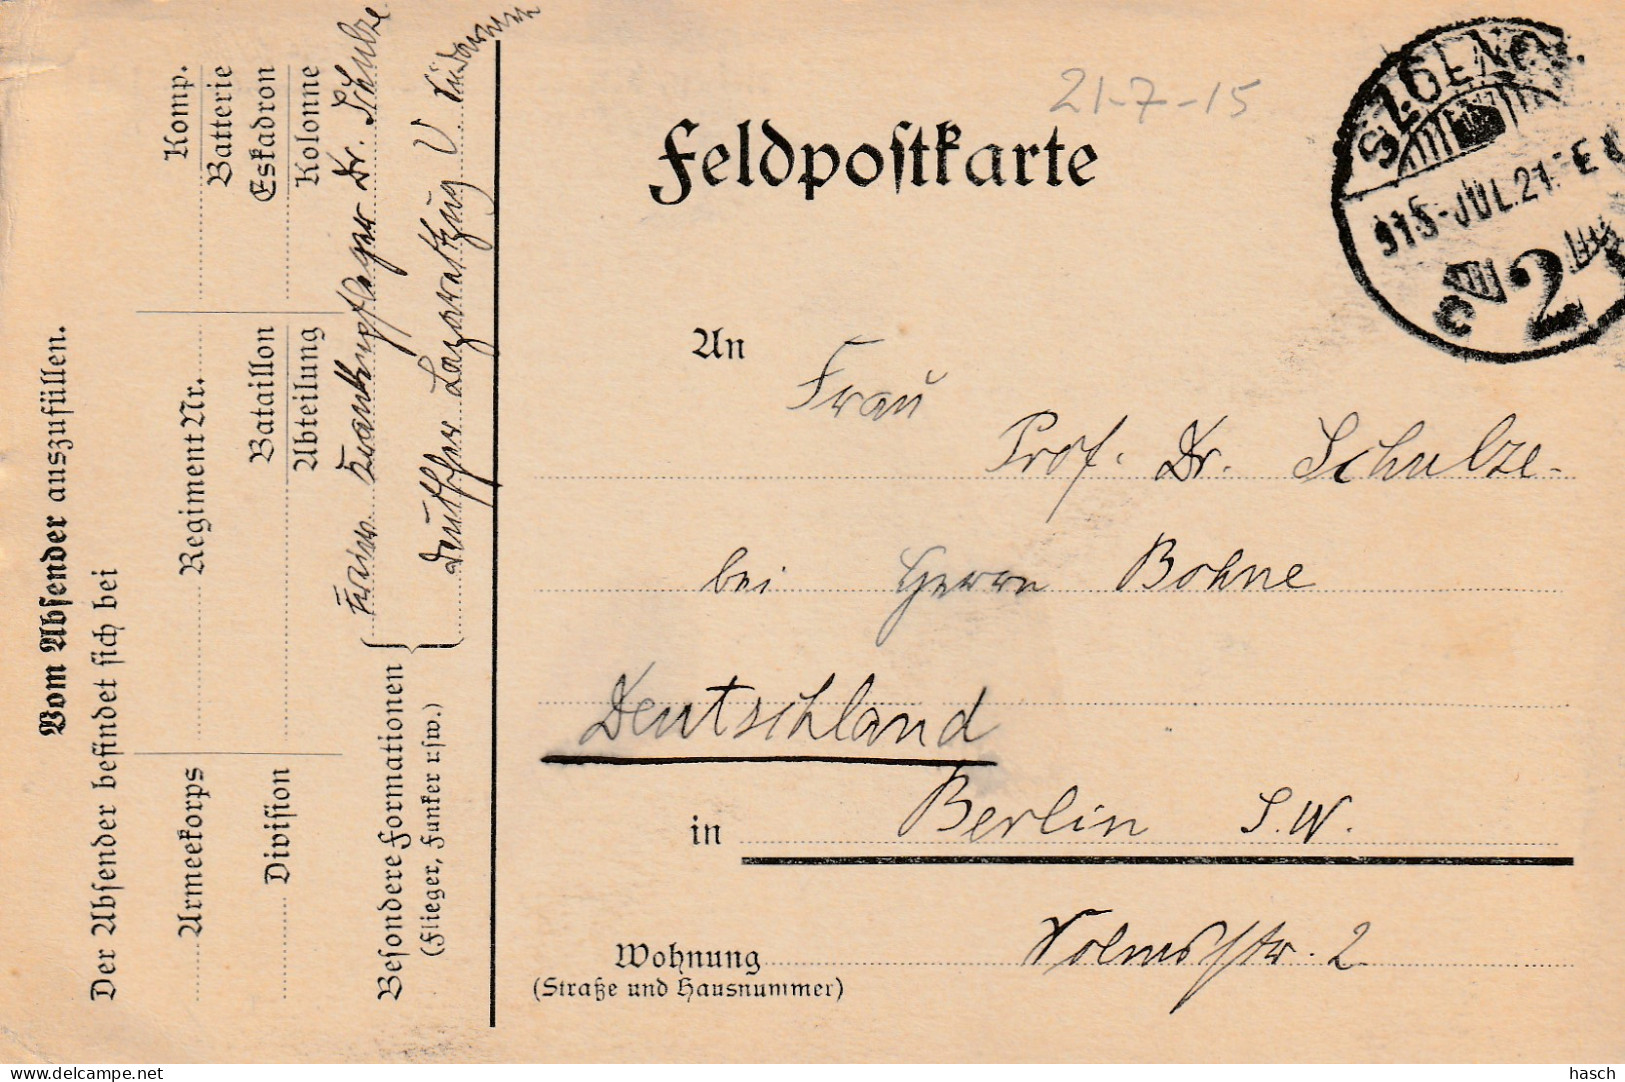 Vom Absender auszufüllen.
Der Absender befindet sich bei
Armeekorps
Regiment Nr.
Komp.
Batterie
Division
Bataillon
Abteilung
Eskadron
Kolonne
Besondere Formationen
(Flieger, Funker usw.)
Krankenpfleger Dr. Schulze
Deutscher Lazarettzug V.
21-7-15
Feldpostkarte
915-JUL.21
2
An
Frau
Prof. Dr. Schulze-
bei Herrn Bohne
Deutschland
in Berlin S.W.
Wohnung 2
(Straße und Hausnummer)
delcampe.net
hasch